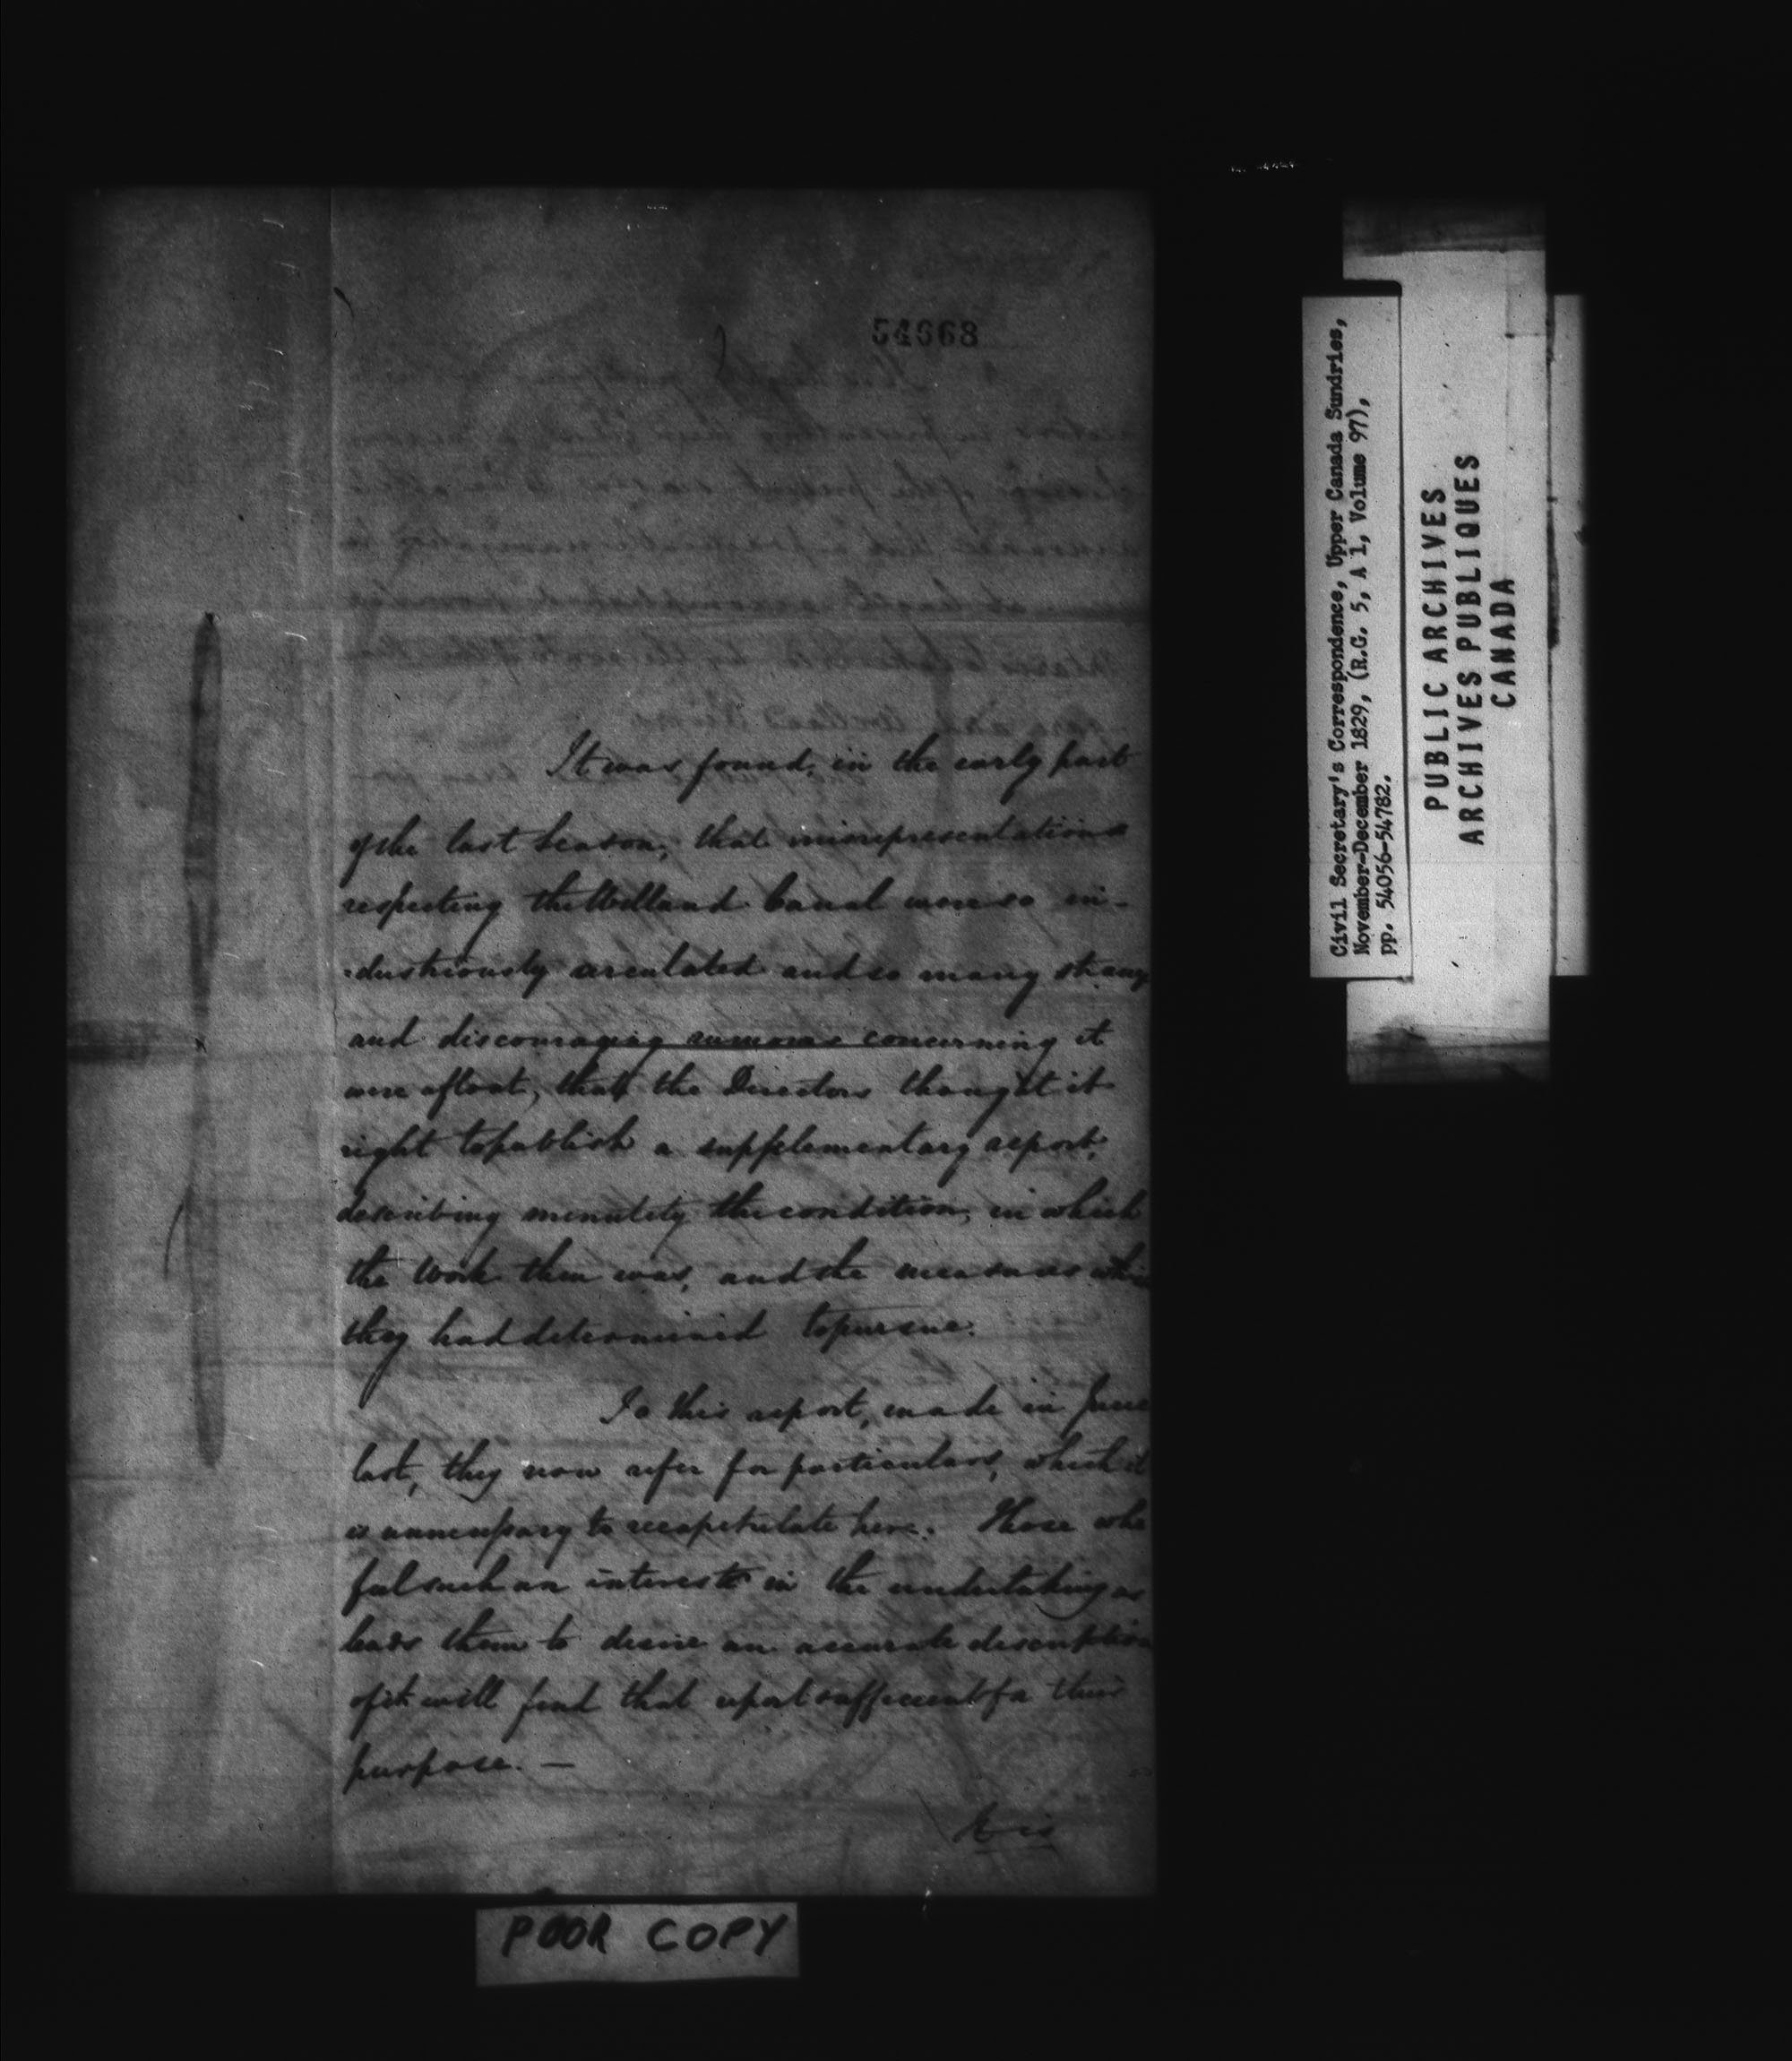 54668
It was found, in the early part
of the last Season, that misrepresentations
respecting the Welland Canal were so in-
-dustriously circulated and so many strange
and discouraging rumours concerning it
were afloat, that the Directors thought it
right to publish a supplementary report,
describing minutely the condition, in which
the Work then was, and the measures which
they had determined to pursue.
To this report, made in June
last, they now refer for particulars, which it
is unnecessary to recapitulate here. Those who
feel such an interest in the undertaking as
leads them to desire an accurate description
of it will find that report sufficient for their
purpose. —
POOR COPY
Civil Secretary's Correspondence, Upper Canada Sundries,
November-December 1829, (R.G. 5, A 1, Volume 97),
pp. 54056-54782.
PUBLIC ARCHIVES
ARCHIVES PUBLIQUES
CANADA